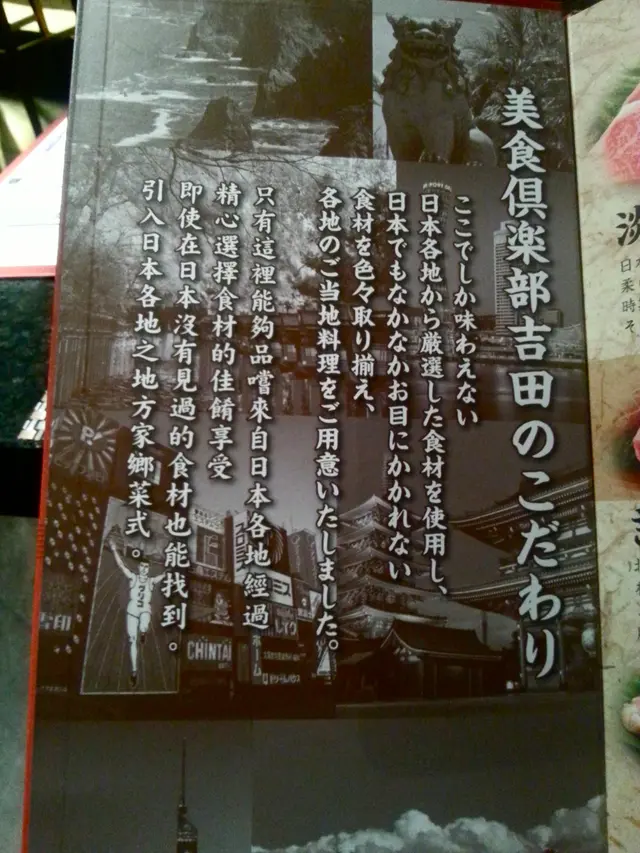 美食倶楽部吉田のこだわり
ここでしか味わえない
日本各地から厳選した食材を使用し、
日本でもなかなかお目にかかれない
食材を色々取り揃え、
各地のご当地料理をご用意いたしました。
只有這裡能夠品嚐來自日本各地經過
精心選擇食材的佳餚享受
即使在日本沒有見過的食材也能找到。
引入日本各地之地方家鄉菜式。
CHINTAI